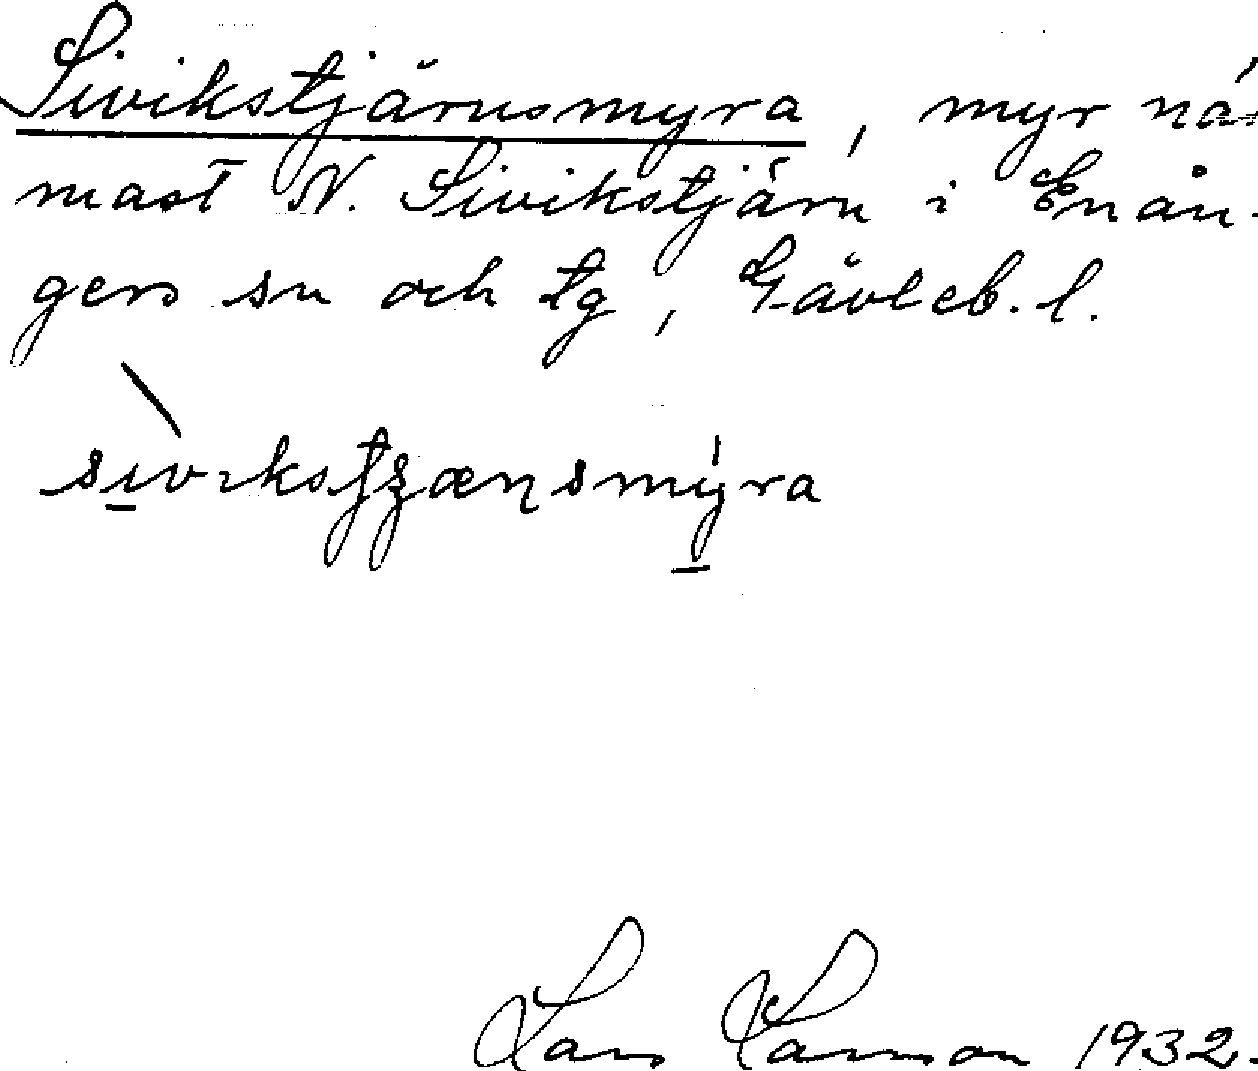 Sivikstjärnsmyra, myr när-
mast N. Sivikstjärn i Enån-
gers sn och tg, Gävleb. l.
Lars Larsson 1932.